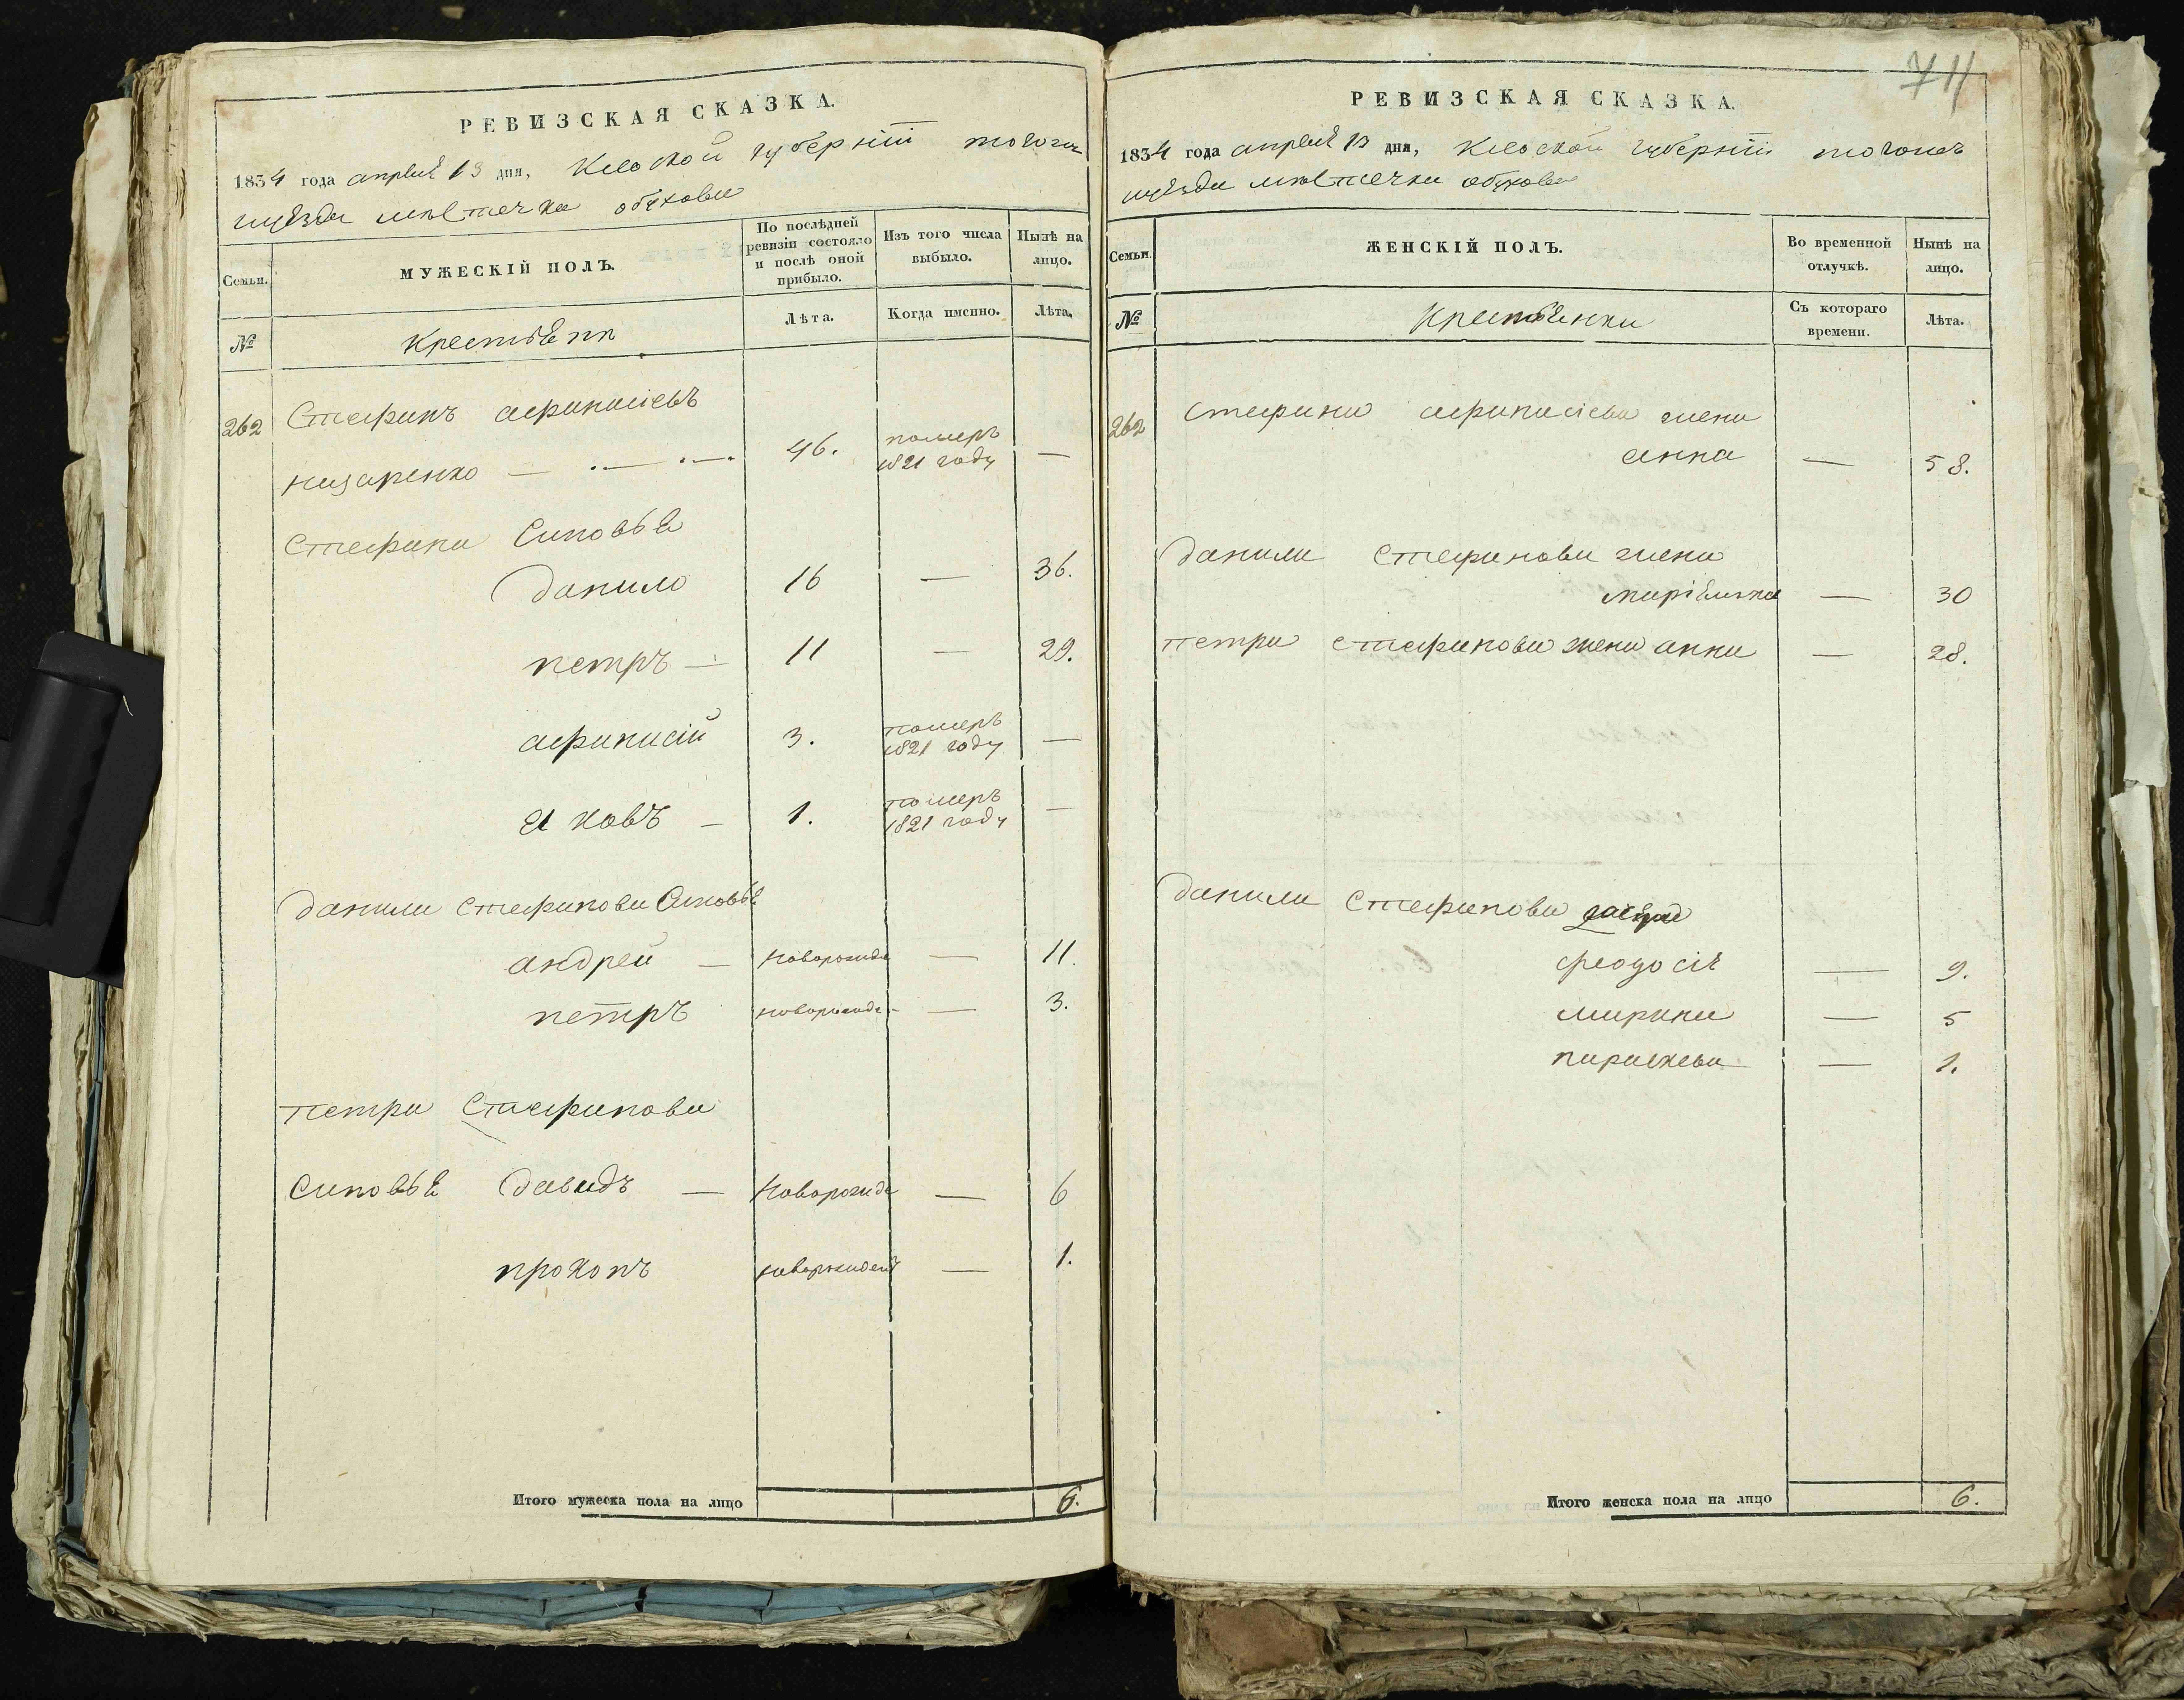 РЕВИЗСКАЯ СКАЗКА.
1834 года апреля 13 дня, Киевской губернiи тогожъ
уѣзда мѣстечка обухова
Семьи.
МУЖЕСКIЙ ПОЛЪ.
По послѣдней ревизiи состояло и послѣ оной прибыло.
Изъ того числа выбыло.
Нынѣ на лицо.
№
Крестьяне
Лѣта.
Когда именно.
Лѣта.
262 Стефанъ афанасiевъ
назаренко — 46. померъ 1821 году —
Стефана Сыновья
данило 16 — 36.
петръ — 11 — 29.
афанасiй 3. померъ 1821 году —
яковъ — 1. померъ 1821 году —
данила Стефанова Сыновья
андрей — новорожде — 11.
петръ новорожде — 3.
петра Стефанова
Сыновья давидъ — новорожде — 6
прокопъ новорожден — 1.
Итого мужеска пола на лицо 6.
711
РЕВИЗСКАЯ СКАЗКА.
1834 года апреля 13 дня, Киевской губернiи тогожъ
уѣзда мѣстечка обухова
Семьи.
ЖЕНСКIЙ ПОЛЪ.
Во временной отлучкѣ.
Нынѣ на лицо.
№
Крестьянки
Съ котораго времени.
Лѣта.
262 Стефана афанасiева жена
анна — 58.
данила Стефанова жена
марiянна — 30
петра Стефанова жена анна — 28.
данила Стефанова
феодосiя — 9.
марина — 5
параскева — 1.
Итого женска пола на лицо 6.